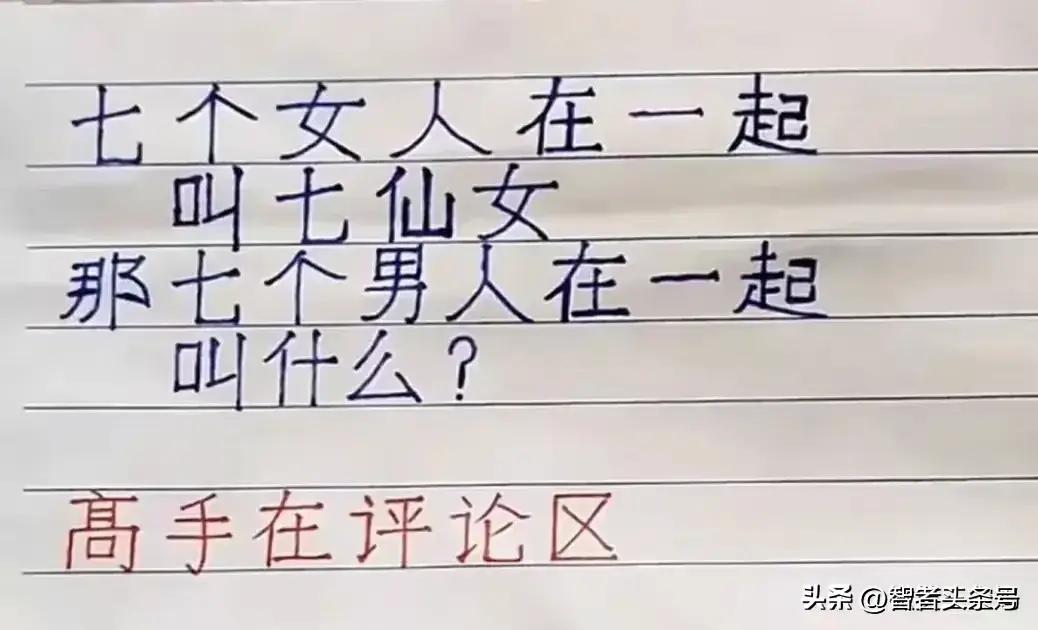 七个女人在一起
叫七仙女
那七个男人在一起
叫什么？
高手在评论区
头条 @智者头条号